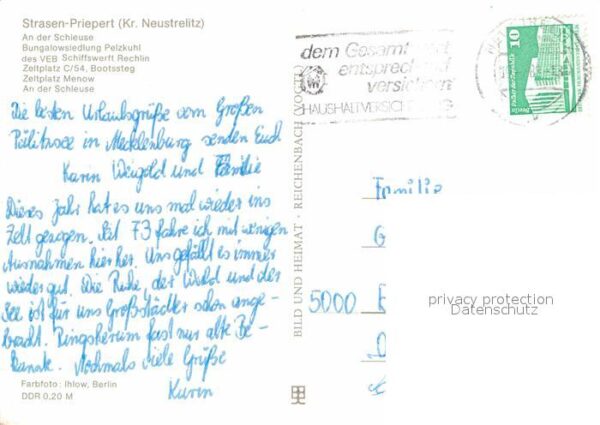 Strasen-Priepert (Kr. Neustrelitz)
An der Schleuse
Bungalowsiedlung Pelzkuhl
des VEB Schiffswerft Rechlin
Zeltplatz C/54, Bootssteg
Zeltplatz Menow
An der Schleuse
Die besten Urlaubsgrüße vom Großen
Pälitzsee in Mecklenburg senden Euch
Karin Weigold und Familie
Dieses Jahr hat es uns mal wieder ins
Zelt gezogen. Seit 73 fahre ich mit wenigen
Ausnahmen hierher. Uns gefällt es immer
wieder gut. Die Ruhe, der Wald und der
See ist für uns Großstädter schon ange-
bracht. Ringsherum fast nur alte Be-
kannte. Nochmals viele Grüße
Karin
Farbfoto: Ihlow, Berlin
DDR 0,20 M
BILD UND HEIMAT · REICHENBACH (VOGTL)
dem Gesamtwert
entsprechend
versichern
HAUSHALTVERSICHERUNG
10
Familie
G
5000 E
privacy protection
Datenschutz